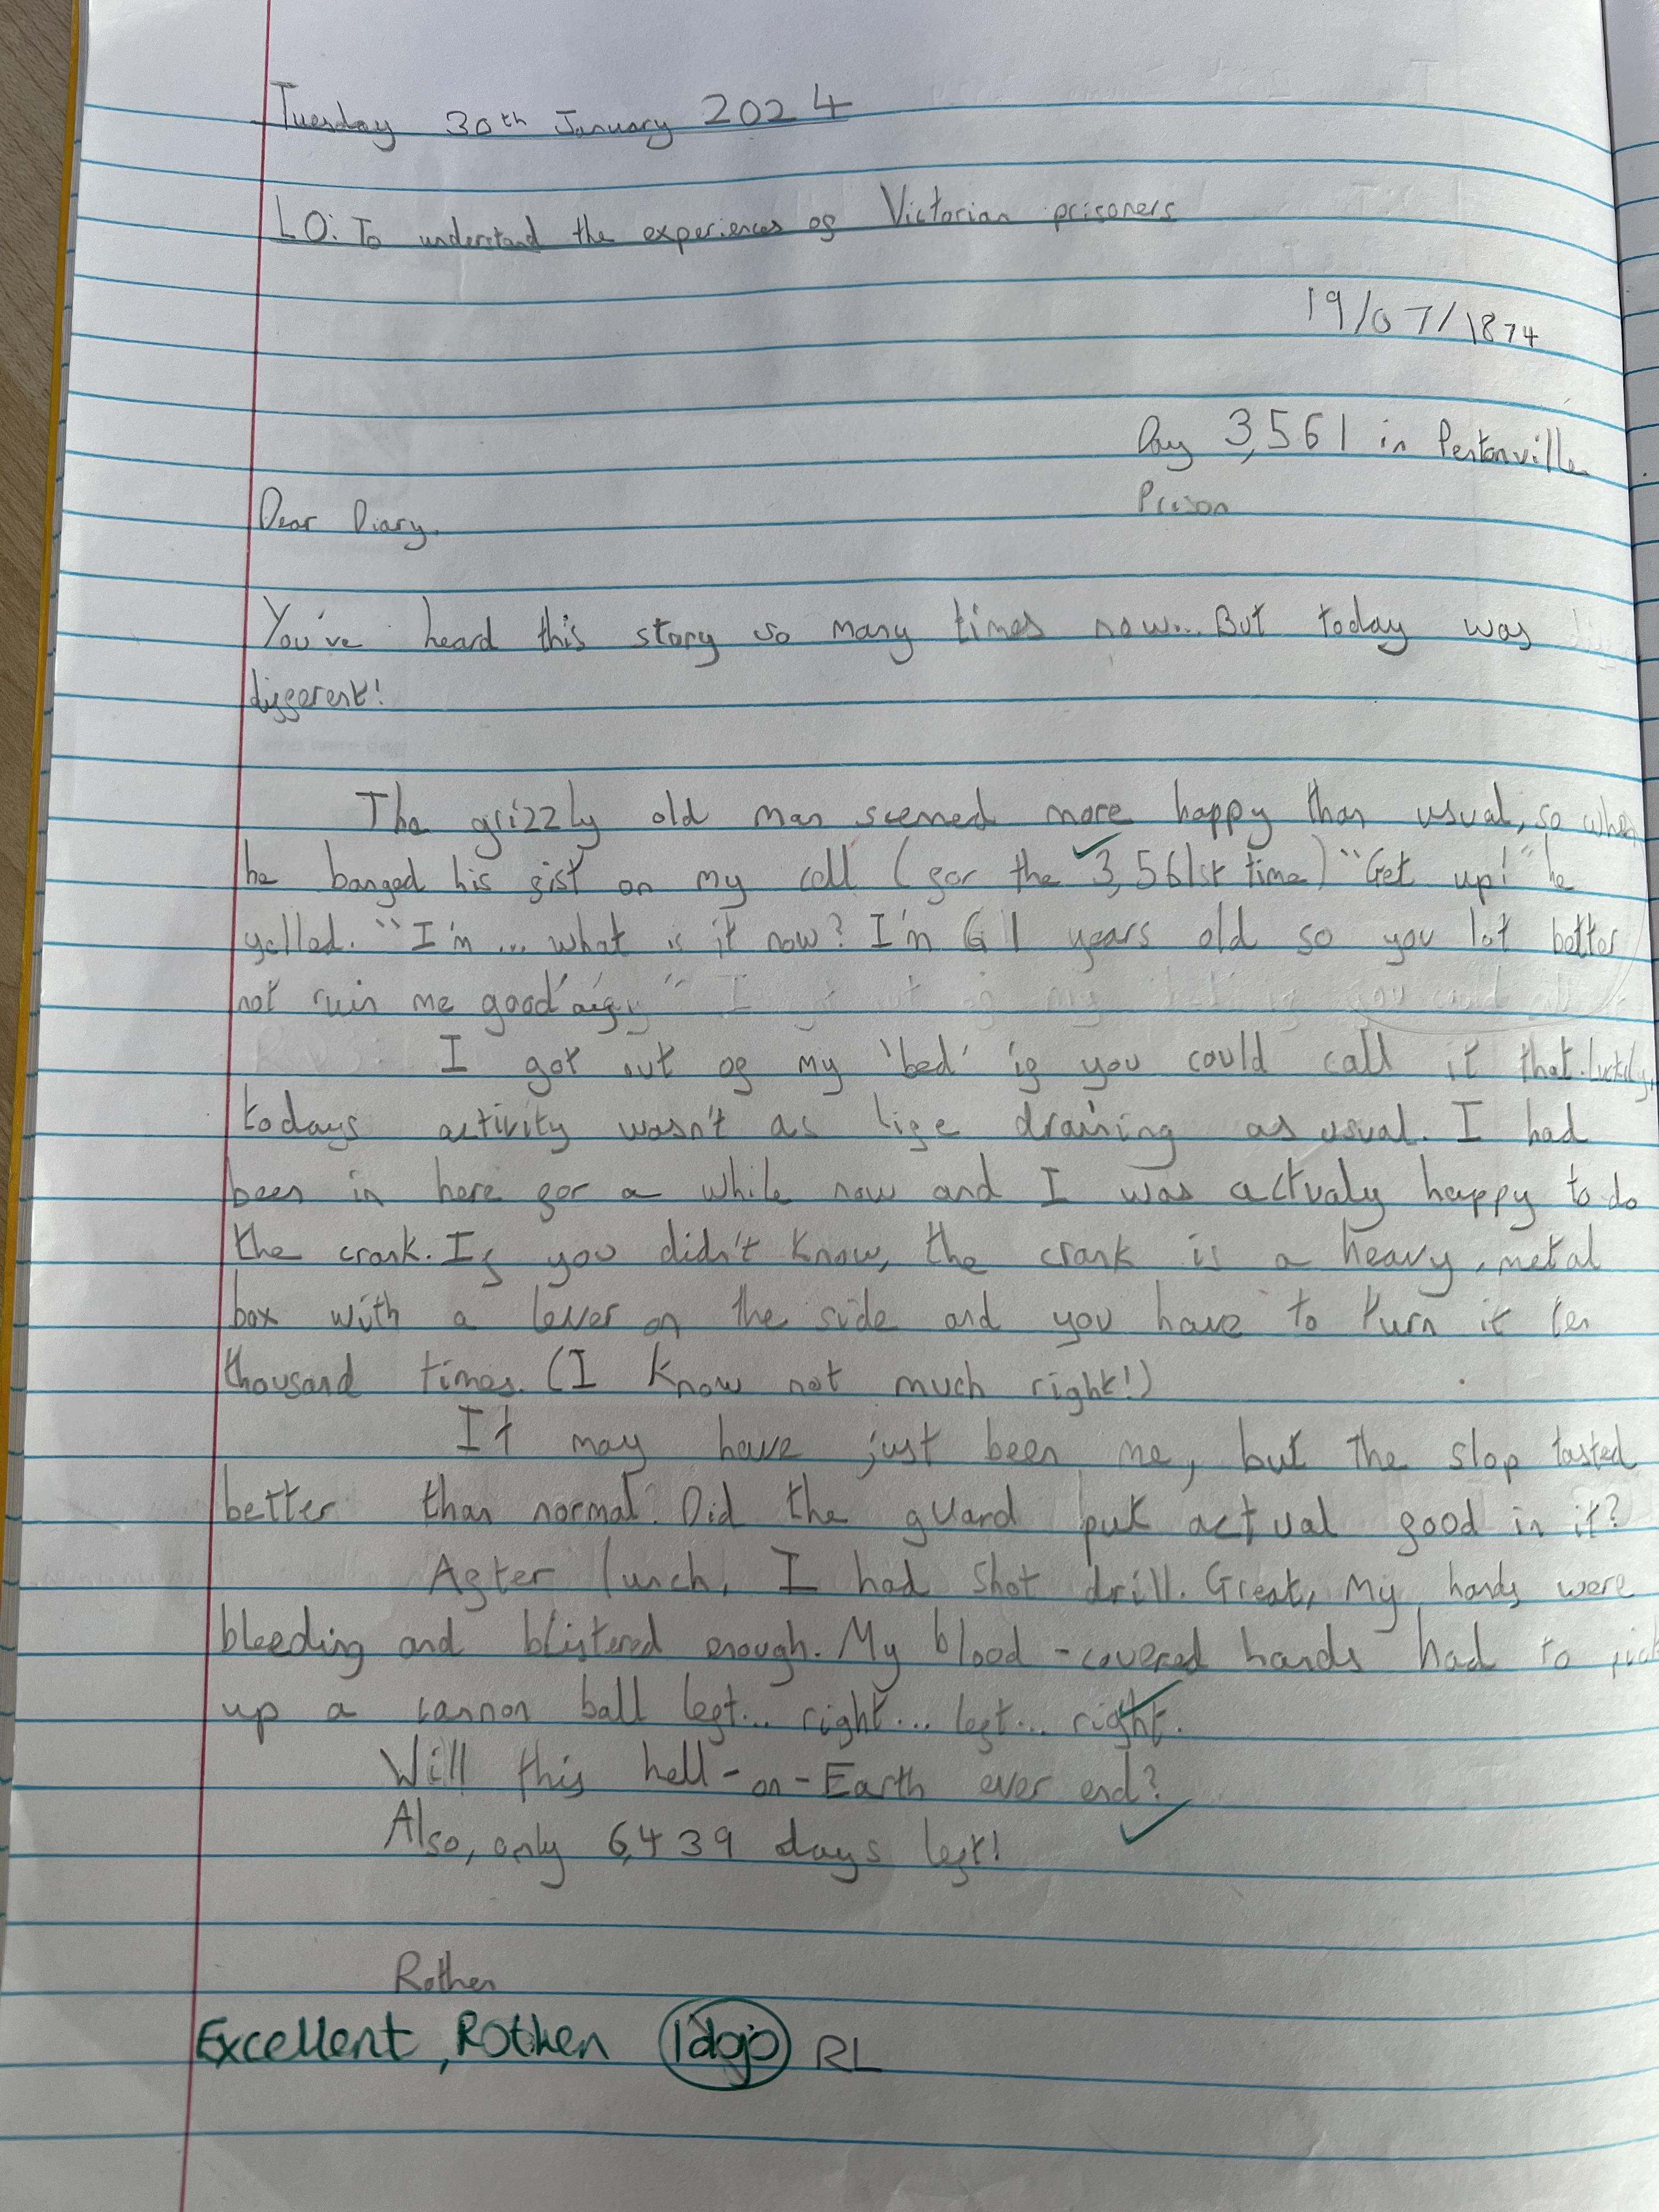 Tuesday 30th January 2024
LO: To understand the experiences of Victorian prisoners
19/07/1874
Day 3,561 in Pentonville
Prison
Dear Diary,
You've heard this story so many times now... But today was
different!
The grizzly old man seemed more happy than usual, so when
he banged his fist on my cell (for the 3,561st time) "Get up!" he
yelled. "I'm... what is it now? I'm 61 years old so you lot better
not ruin me good
I got out of my 'bed' if you could call it that. Luckily,
todays activity wasn't as life draining as usual. I had
been in here for a while now and I was actualy happy to do
the crank. If you didn't know, the crank is a heavy, metal
box with a lever on the side and you have to turn it ten
thousand times. (I know not much right!)
It may have just been me, but the slop tasted
better than normal. Did the guard put actual food in it?
After lunch, I had shot drill. Great, My hands were
bleeding and blistered enough. My blood-covered hands had to pick
up a cannon ball left... right... left... right.
Will this hell-on-Earth ever end?
Also, only 6,439 days left!
Rothen
Excellent, Rothen 1dojo RL